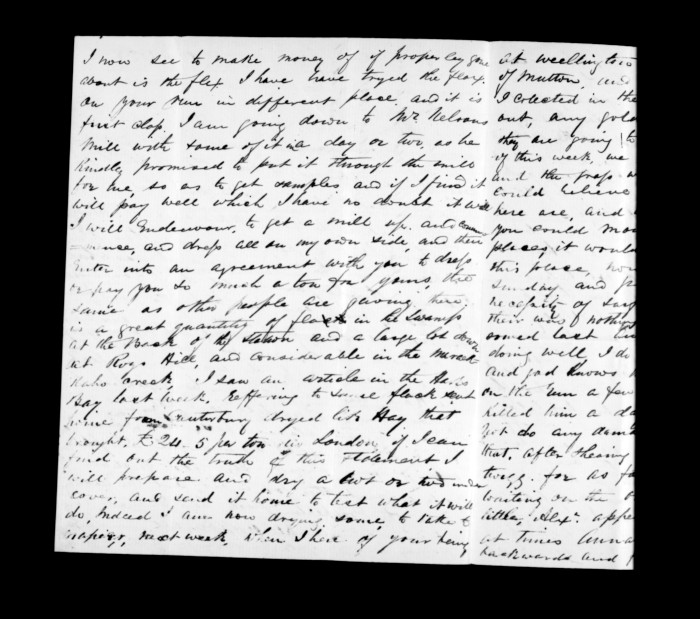 I now see to make money of if properley gone
about is the flex I have have tryed the flax
on your Run in different place, and it is
first clap, I am going down to Mr Nelsons
Mill with some of it in a day or two, as he
Kindly promised to put it through the mill
for me, so as to get samples, and if I find it
will pay well which I have no doubt it will
I will Endeavour, to get a mill up, and comm
ence, and dress all on my own side, and then
Enter into an agreement with you to dress
or pay you so much a ton for yours, the
same as other people are giving, here,
is a great quantity of flax in the Swamps
at the Back of the Station and a large lot down
at Roys Hill, and considerable in the
creek, I saw an, article in the Haks
Bay last week, Reffering to some flack sent
home from Canterbury dryed like Hay, that
brought, £ 24. 5 per ton in London, if I can
find out the truth of this statement I
will prepare and dry a cwt or under
cover, and send it home to test what it will
do, Indeed I am now drying, some, to take to
napier, next week, when I here of your being
at wellington
of mutton, and
I colected in the
out, any gold
they are going to
of this week, we
and the grass
could believe
here are, and
you could
place, it would
this place,
Sunday and
necessity of say
their was nothing
doing well, I do
and god knows
on the Run a few
killed him a da
yet do any dam
that, after
for as fa
waiting on the
little, Alexr. appe
at times
backwards and